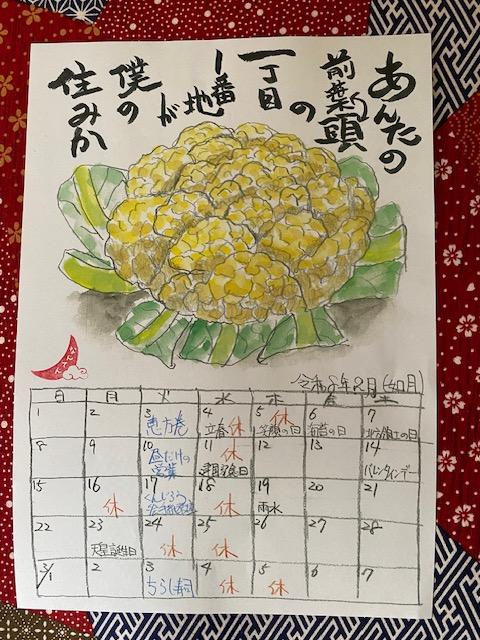 あんたの
前葉頭
の
一丁目
1番
地
が
僕の
住みか
令和8年2月(如月)
日 月 火 水 木 金 土
1 2 3 4 5 6 7
恵方巻 立春 休 休 笑顔の日 海苔の日 北方領土の日
8 9 10 11 12 13 14
昼だけの 休
営業 建国記念日 バレンタインデー
15 16 17 18 19 20 21
休 くんじろう 休 雨水
22 23 24 25 26 27 28
天皇誕生日 休 休
3/1 2 3 4 5 6 7
ちらし寿司 休 休